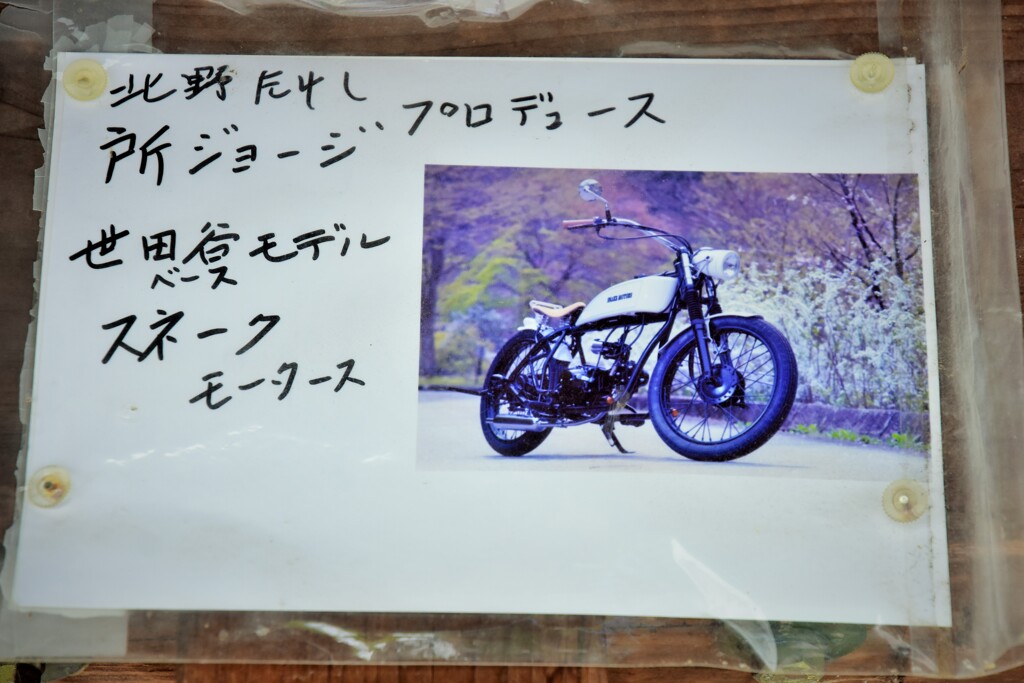 北野たけし
所ジョージ プロデュース
世田谷モデル
ベース
スネーク
モータース